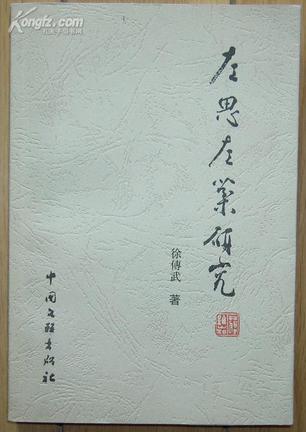 Kongfz.com
孔夫子旧书网
左思左棻研究
徐傳武 著
中国文联出版社